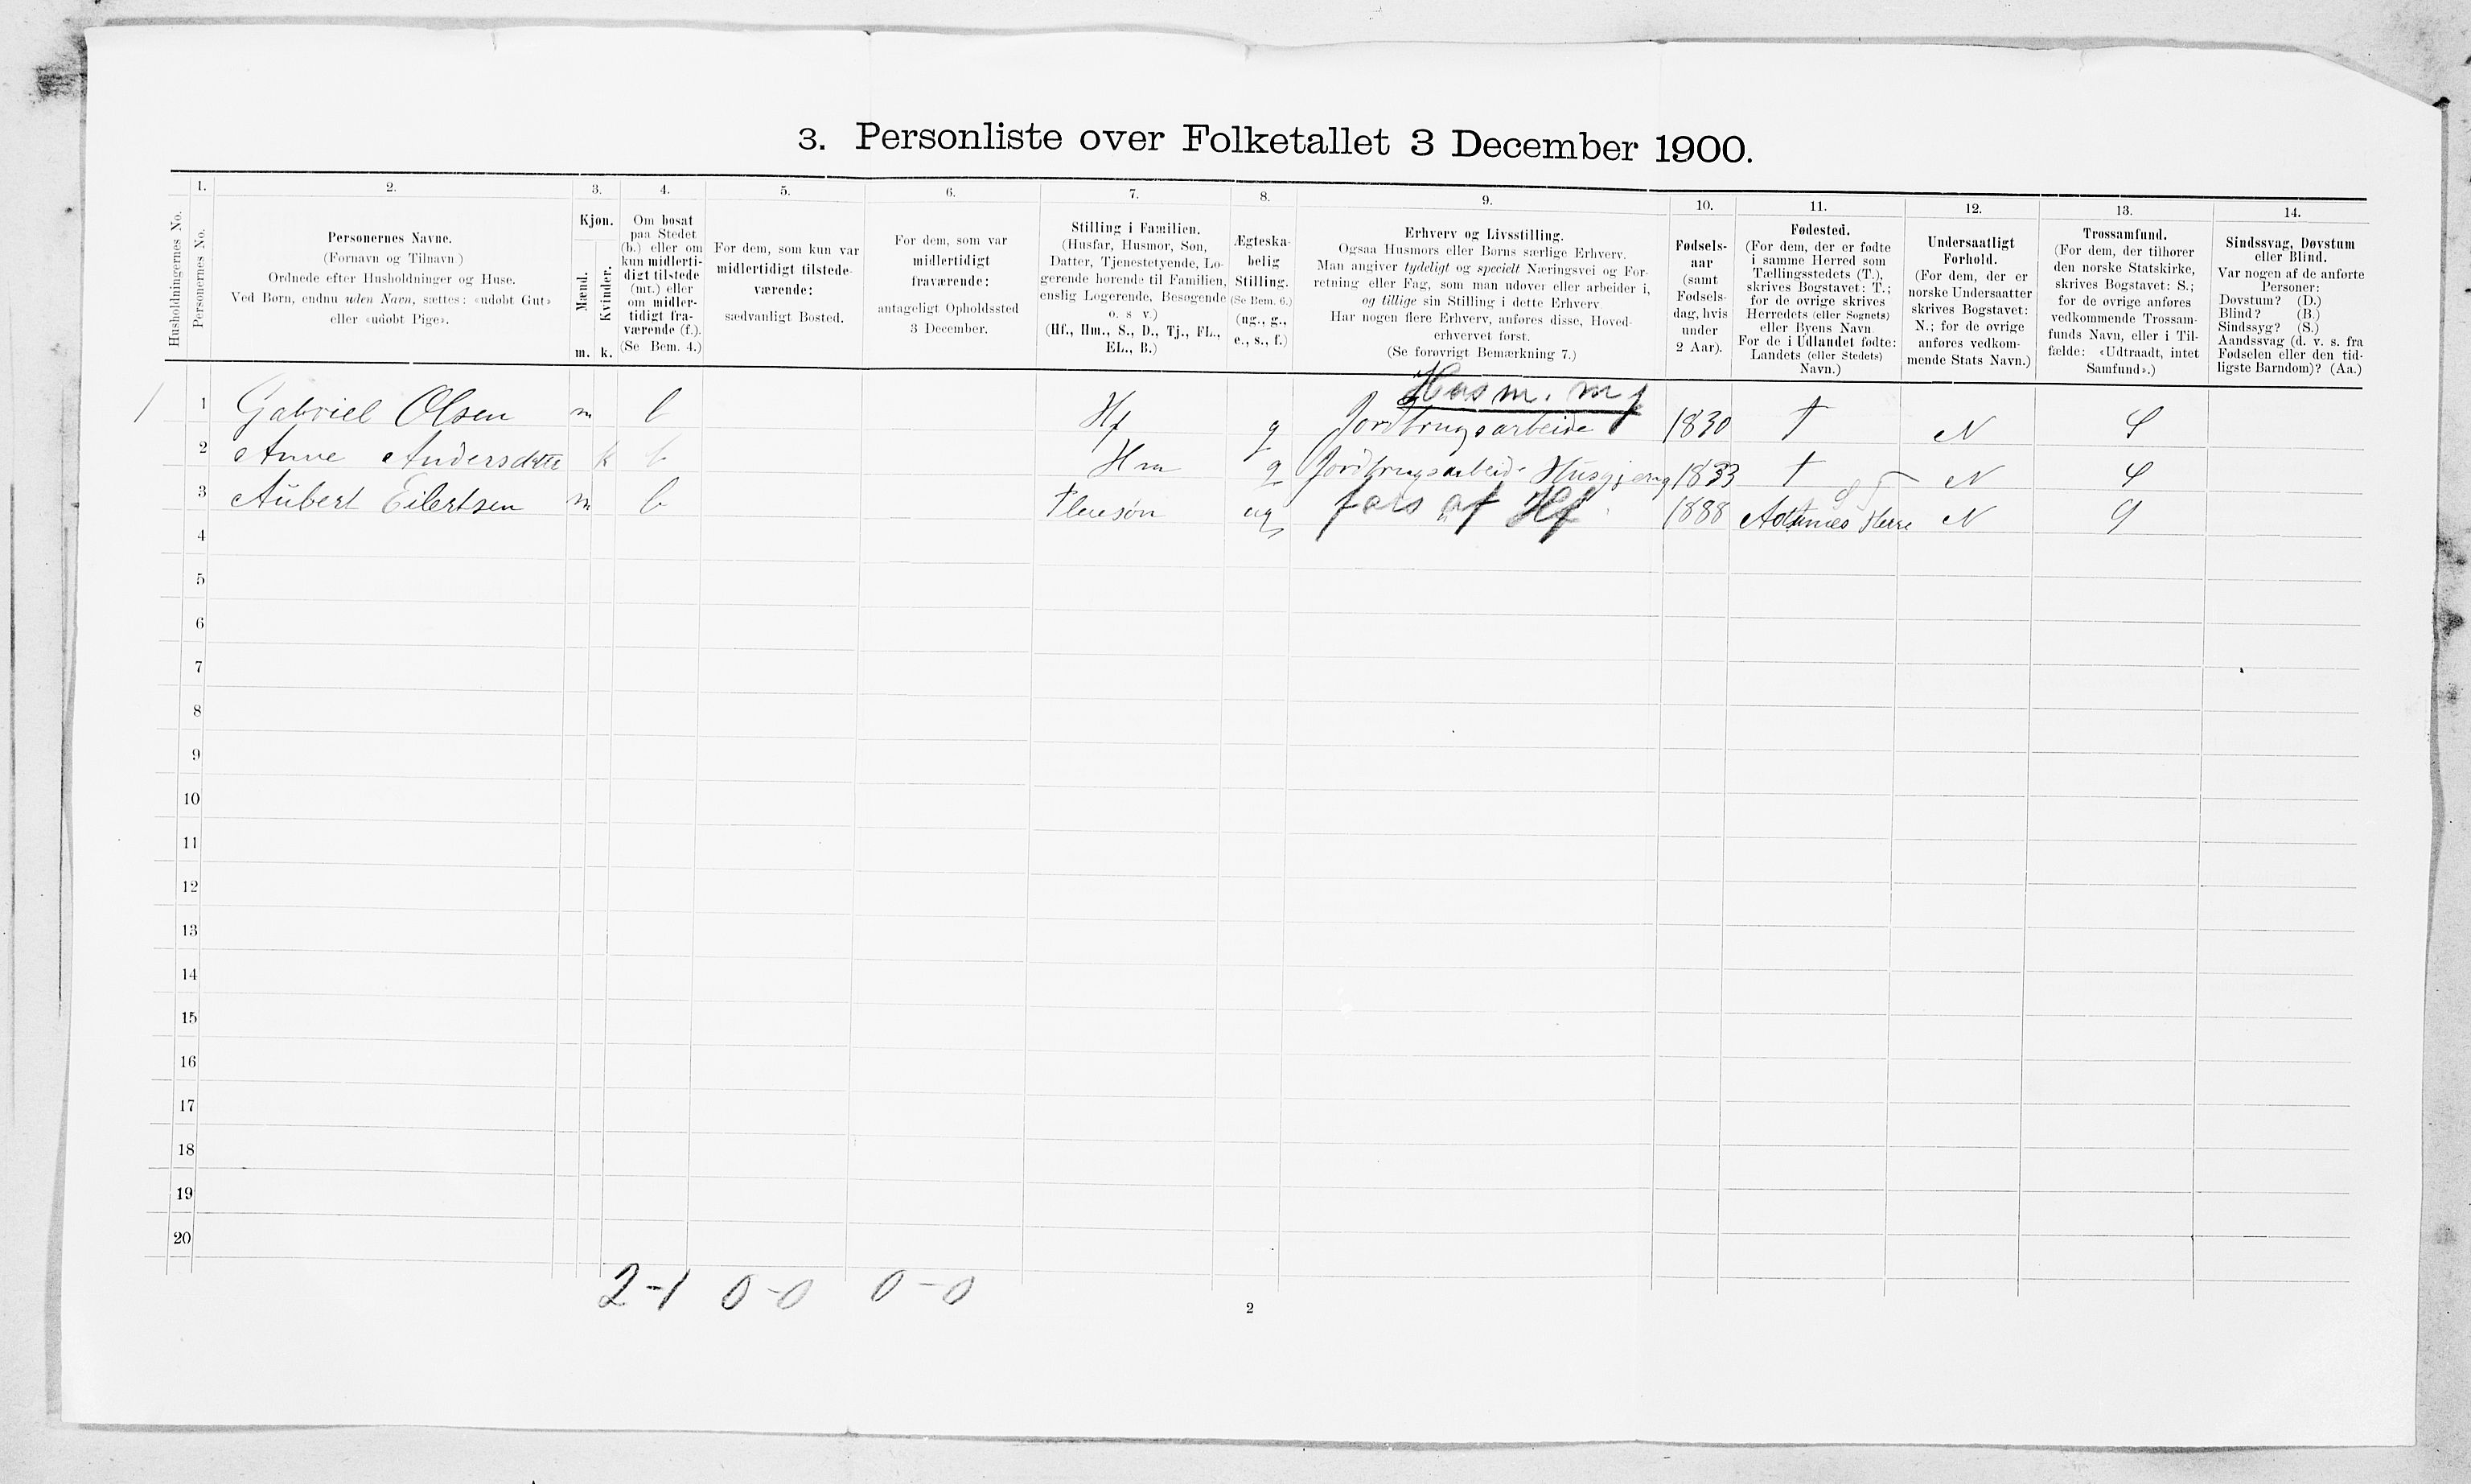 3. Personliste over Folketallet 3 December 1900.
Husholdningernes No.
1.
Personernes No.
2.
Personernes Navne.
(Fornavn og Tilnavn )
Ordnede efter Husholdninger og Huse.
Ved Børn, endnu uden Navn, sættes: «udøbt Gut»
eller «udøbt Pige».
3.
Kjøn.
Mænd.
Kvinder.
m. k.
4.
Om bosat
paa Stedet
(b.) eller om
kun midlerti-
digt tilstede
(mt.) eller
om midler-
tidigt fra-
værende (f.).
(Se Bem. 4.)
5.
For dem, som kun var
midlertidigt tilstede-
værende:
sædvanligt Bosted.
6.
For dem, som var
midlertidigt
fraværende:
antageligt Opholdssted
3 December.
7.
Stilling i Familien.
(Husfar, Husmor, Søn,
Datter, Tjenestetyende, Lo-
gerende hørende til Familien,
enslig Logerende, Besøgende
o. s v.)
(Hf., Hm., S., D., Tj., FL.,
EL., B.)
8.
Ægteska-
belig
Stilling.
(Se Bem. 6.)
(ug., g.,
e., s., f.)
9.
Erhverv og Livsstilling.
Ogsaa Husmors eller Børns særlige Erhverv.
Man angiver tydeligt og specielt Næringsvei og For-
retning eller Fag, som man udøver eller arbeider i,
og tillige sin Stilling i dette Erhverv.
Har nogen flere Erhverv, anføres disse, Hoved-
erhvervet først.
(Se forøvrigt Bemærkning 7.)
10.
Fødsels-
aar
(samt
Fødsels-
dag, hvis
under
2 Aar).
11.
Fødested.
(For dem, der er fødte
i samme Herred som
Tællingsstedets (T.),
skrives Bogstavet: T.;
for de øvrige skrives
Herredets (eller Sognets)
eller Byens Navn.
For de i Udlandet fødte:
Landets (eller Stedets)
Navn.)
12.
Undersaatligt
Forhold.
(For dem, der er
norske Undersaatter
skrives Bogstavet:
N.; for de øvrige
anføres vedkom-
mende Stats Navn.)
13.
Trossamfund.
(For dem, der tilhører
den norske Statskirke,
skrives Bogstavet: S.;
for de øvrige anføres
vedkommende Trossam-
funds Navn, eller i Til-
fælde: «Udtraadt, intet
Samfund».)
14.
Sindssvag, Døvstum
eller Blind.
Var nogen af de anførte
Personer:
Døvstum? (D.)
Blind? (B.)
Sindssyg? (S.)
Aandssvag (d. v. s. fra
Fødselen eller den tid-
ligste Barndom)? (Aa.)
Husm. m j
1 1 Gabriel Olsen m b Hf g Jordbrugsarbeide 1830 T N S
2 Anne Andersdtte k b Hm g Jordbrugsarbeid- Husgjerng 1833 T N S
3 Aubert Eilertsen m b Pleiesøn ug fors af Hf 1888 N S
4
5
6
7
8
9
10
11
12
13
14
15
16
17
18
19
20
2-1 0-0 0-0
2